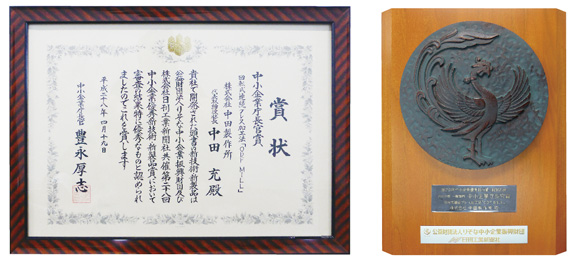 賞状
中小企業庁長官賞
回転式連続プレス加工法「ORF MILL」
株式会社 中田製作所
代表取締役社長 中田 充殿
貴社で開発された頭書の新技術新製品は
公益財団法人りそな中小企業振興財団及び
株式会社日刊工業新聞社共催第二十八回
中小企業優秀新技術・新製品賞において
審査の結果特に優秀なものと認められ
ましたのでこれを賞します
平成二十八年四月十九日
中小企業庁長官 豊永厚志
公益財団法人りそな中小企業振興財団
日刊工業新聞社